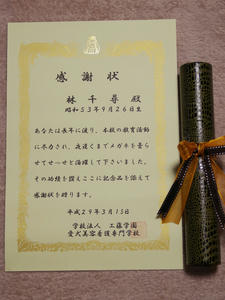 感謝状
林千尋 殿
昭和53年9月26日生
あなたは長年に渡り、本校の教育活動
に尽力され、夜遅くまでメガネを曇ら
せてせーせと活躍して下さいました。
その功績を讃えここに記念品を添えて
感謝状を贈ります。
平成29年3月15日
学校法人 工藤学園
愛犬美容看護専門学校